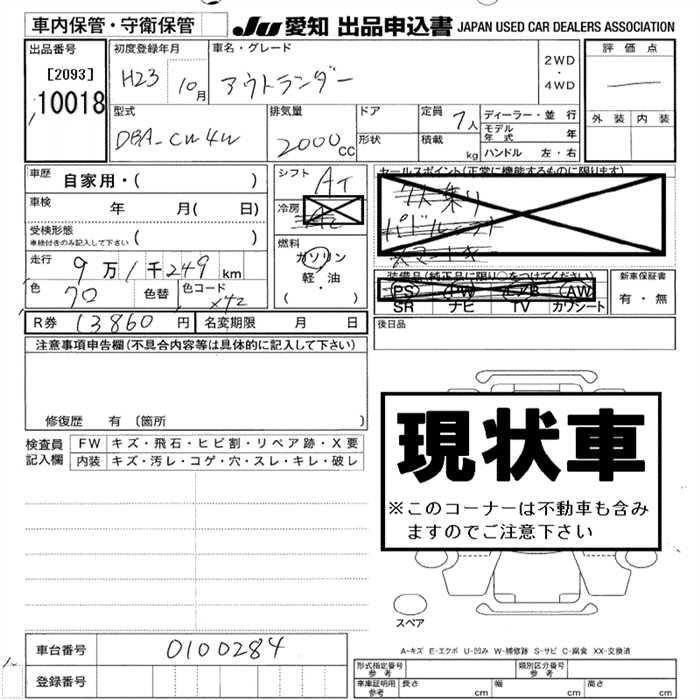 車内保管・守衛保管 JU 愛知 出品申込書 JAPAN USED CAR DEALERS ASSOCIATION
出品番号 初度登録年月 車名・グレード 評価点
[2093] H23 10月 アウトランダー 2WD・4WD
10018 外装 内装
型式 排気量 ドア 定員 7人 ディーラー・並行
DBA-CW4W 2000CC 形状 積載 kg モデル年式 年
ハンドル 左・右
車歴 自家用・( ) シフト AT セールスポイント(正常に機能するものに限ります)
車検 年 月( 日) 冷房 7人乗り
受検形態 ( ) パドルシフト
車検付きのみ記入して下さい 燃料 スマートキー
走行 9万1千249km ガソリン 装備品(純正品に限り○をつけてください) 新車保証書
色 70 色替 色コード X42 軽・油 PS PW エアB AW 有・無
( ) SR ナビ TV カワシート
R券 13860円 名変期限 月 日 後日品
注意事項申告欄(不具合内容等は具体的に記入して下さい)
修復歴 有 〔箇所 〕
検査員記入欄 FW キズ・飛石・ヒビ割・リペア跡・X要
内装 キズ・汚レ・コゲ・穴・スレ・キレ・破レ
現状車
※このコーナーは不動車も含み
ますのでご注意下さい
スペア
A-キズ E-エクボ U-凹み W-補修跡 S-サビ C-腐食 XX-交換済
車台番号 0100284
登録番号
形式指定番号 参考 類別区分番号 参考
車庫証明用 参考 長さ cm 幅 cm 高さ cm